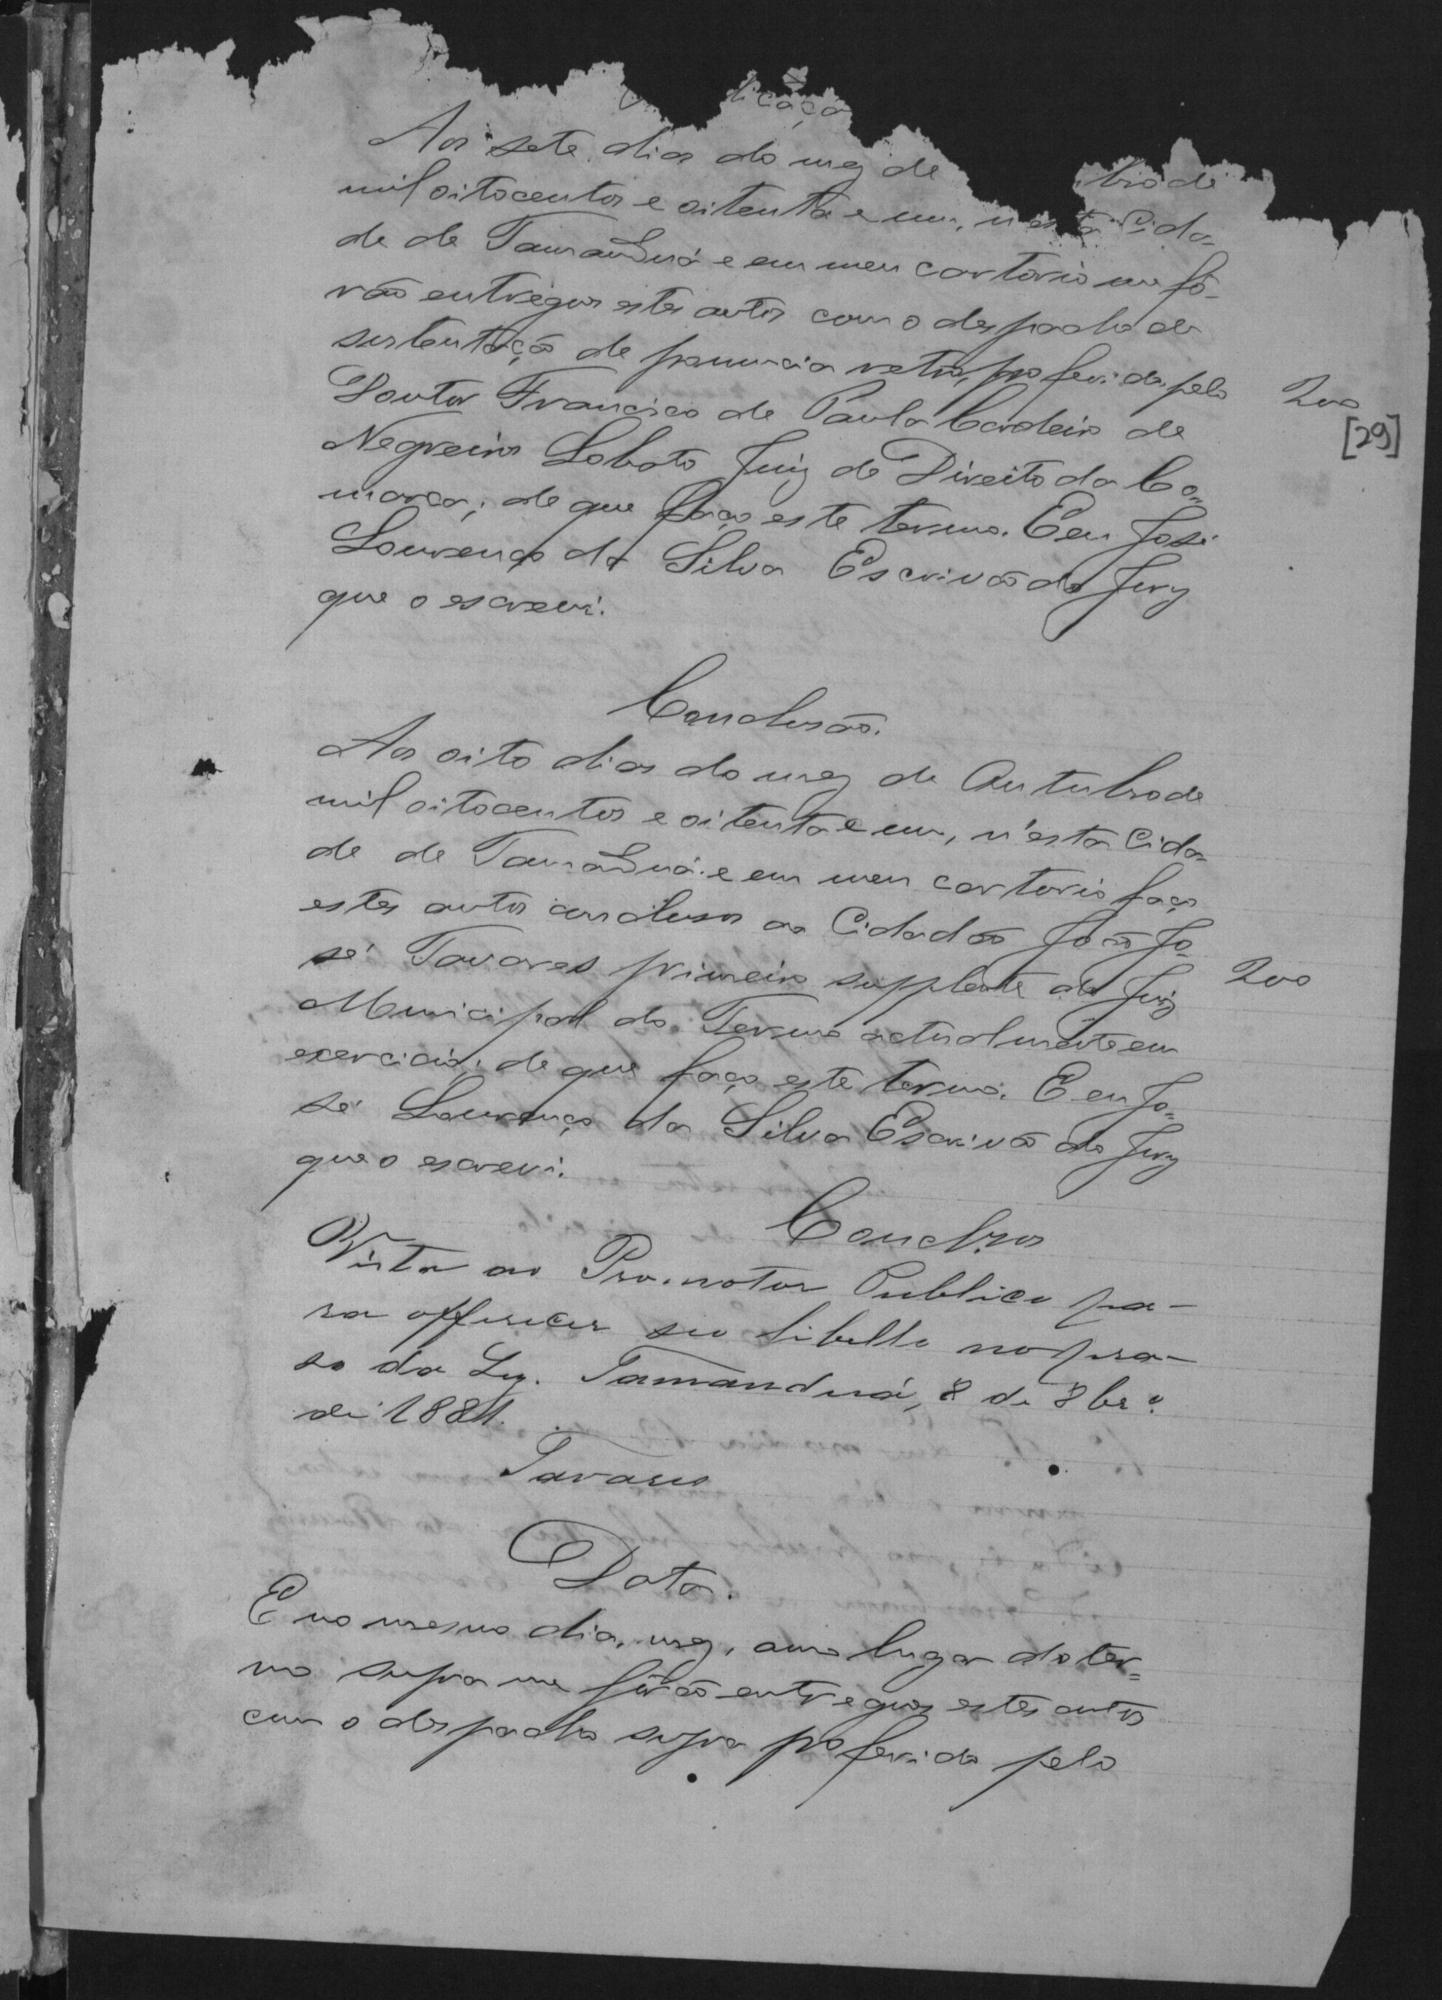 licaçã
Aos sete dias do mez de bro de
mil oitocentos e oitenta e um, n'esta Cida-
de de Tamanduá e em meu cartorio me fô-
rão entregues estes autos com o despacho de
sustentação de pronuncia retro, proferida pelo
200
Doutor Francisco de Paula Cordeiro de
[29]
Negreiros Lobato Juiz de Direito da Co-
marca; de que faço este termo. E eu José
Lourenço da Silva Escrivão do Jury
que o escrevi.
Conclusão.
Aos oito dias do mez de Outubro de
mil oitocentos e oitenta e um, n'esta Cida-
de de Tamanduá e em meu cartorio faço
estes autos conclusos ao Cidadão João Jo-
sé Tavares primeiro supplente do Juiz
200
Municipal do Termo actualmente em
exercicio; de que faço este termo. E eu Jo-
sé Lourenço da Silva Escrivão do Jury
que o escrevi.
Conclzos
Vista ao Promotor Publico pa-
ra offerecer seu libello no pra-
so da Ley. Tamanduá, 8 de 8br.º
de 1881.
Tavares
Data.
E no mesmo dia, mez, anno lugar do ter-
mo supra me fôrão entregues estes autos
com o despacho supra proferido pelo